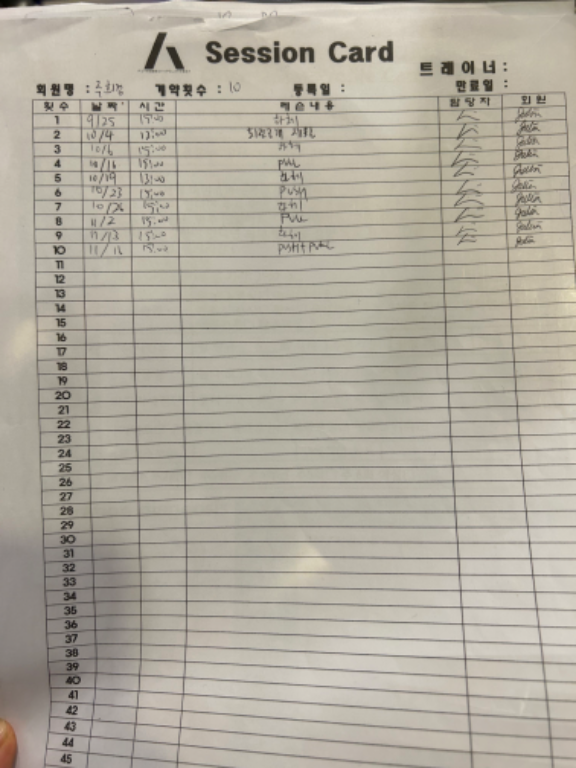 Session Card
트레이너 :
회원명 : 계약횟수 : 10 등록일 : 만료일 :
횟수 날짜 시간 레슨내용 담당자 회원
1 9/25 15:00 하체
2 10/4 13:00
3 10/6 15:00
4 10/16 15:00 PULL
5 10/19 13:00 하체
6 10/23 15:00 PUSH
7 10/26 15:00 하체
8 11/2 15:00 PULL
9 11/13 15:00 하체
10 11/16 15:00 PUSH+PULL
11
12
13
14
15
16
17
18
19
20
21
22
23
24
25
26
27
28
29
30
31
32
33
34
35
36
37
38
39
40
41
42
43
44
45